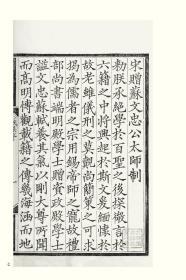 宋贈蘇文忠公太師制
勑朕承絕學於百聖之後探微言於
六籍之中將興起於斯文爰緬懷於
故老雖儀刑之莫覿尚簡策之可求
揭為儒者之宗用錫帝師之寵故禮
部尚書端明殿學士贈資政殿學士
諡文忠蘇軾養其氣以剛大尊所聞
而高明博觀載籍之傳幾海涵而地